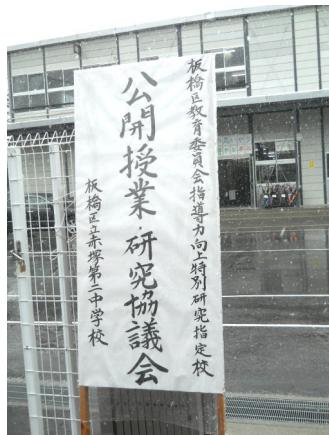 板橋区教育委員会指導力向上特別研究指定校
公開授業・研究協議会
板橋区立赤塚第二中学校